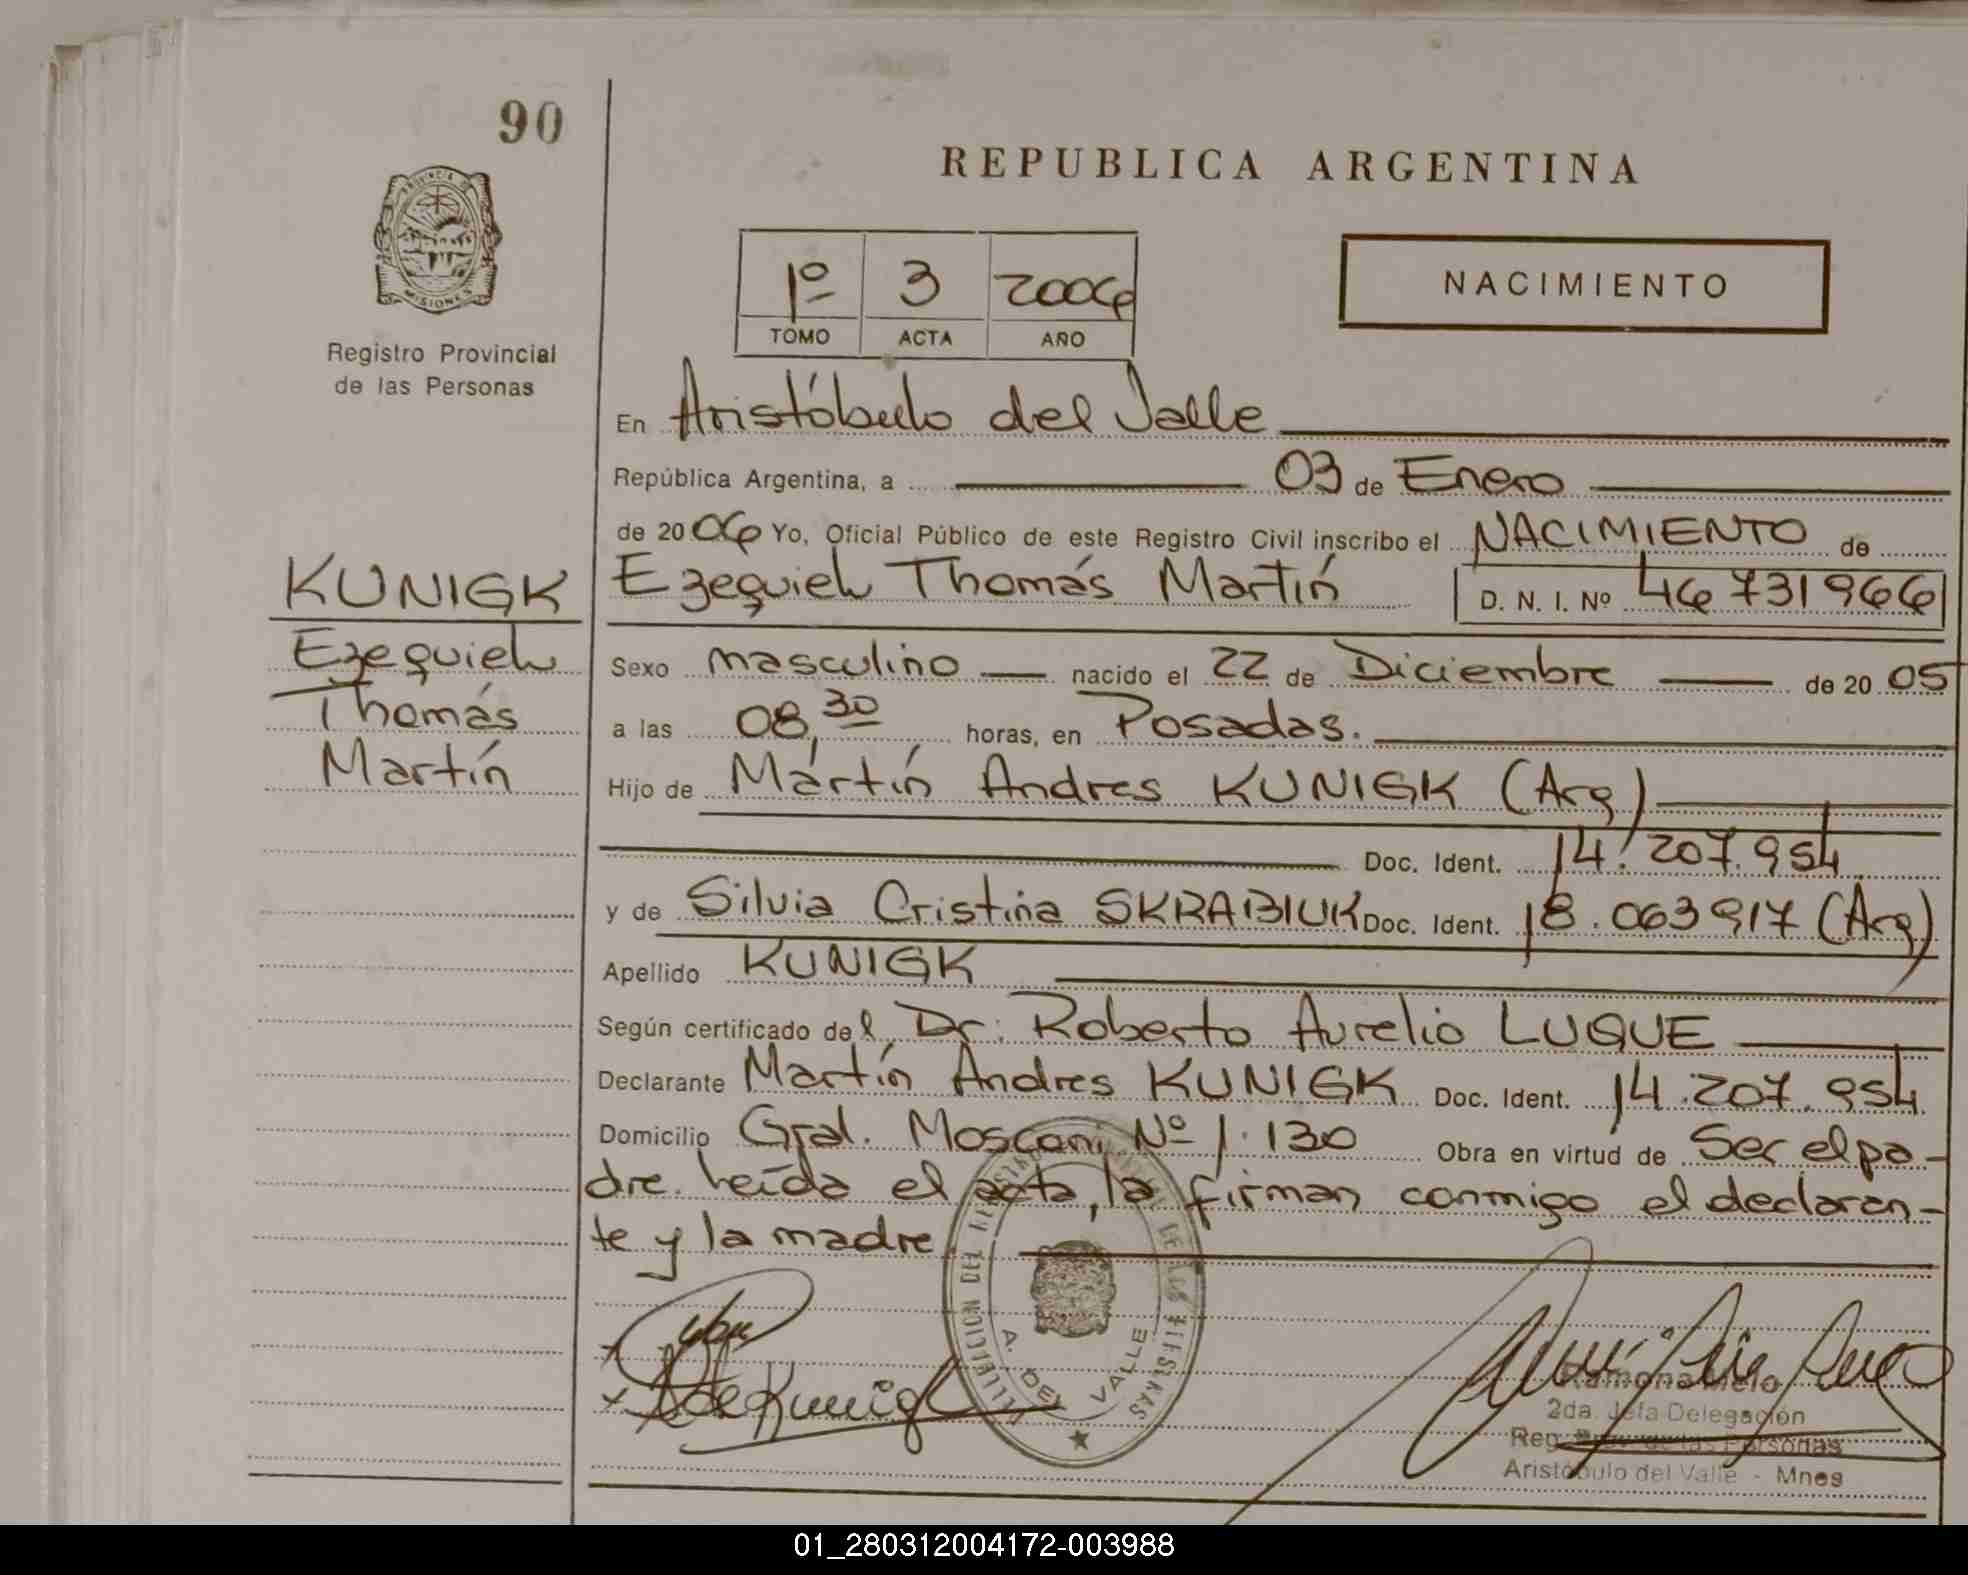 90
REPUBLICA ARGENTINA
PROVINCIA DE
MISIONES
Registro Provincial
de las Personas
1º 3 2006
TOMO ACTA AÑO
NACIMIENTO
En Aristóbulo del Valle
República Argentina, a 03 de Enero
de 2006 Yo, Oficial Público de este Registro Civil inscribo el NACIMIENTO de
KUNIGK
Ezequiel
Thomás
Martín
Ezequiel Thomás Martín D. N. I. Nº 46731966
Sexo masculino nacido el 22 de Diciembre de 2005
a las 08,30 horas, en Posadas.
Hijo de Martín Andres KUNIGK (Arg)
Doc. Ident. 14.207.954
y de Silvia Cristina SKRABIUK Doc. Ident. 18.063917 (Arg)
Apellido KUNIGK
Según certificado del Dr. Roberto Aurelio LUQUE
Declarante Martín Andres KUNIGK Doc. Ident. 14.207.954
Domicilio Gral. Mosconi Nº 1.130 Obra en virtud de Ser el pa-
dre. Leída el acta, la firman conmigo el declaran-
te y la madre
A. DEL VALLE
Ramona Melo
2da. Jefa Delegación
Reg. Prov. de las Personas
Aristóbulo del Valle - Mnes
01_280312004172-003988